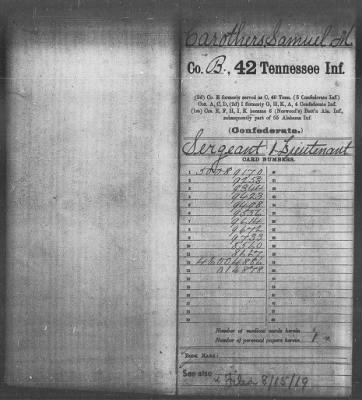 Carothers, Samuel M.
Co. B., 42 Tennessee Inf.
(2d) Co. E formerly served as C. 46 Tenn. (5 Confederate Inf.)
Cos. A, C, D, (2d) I formerly G, H, K, A, 4 Confederate Inf.
(1st) Cos. E, F, H, I, K became 6 (Norwood's) Batt'n Ala. Inf.,
subsequently part of 55 Alabama Inf.
(Confederate.)
Sergeant 1 Lieutenant
CARD NUMBERS.
1 50089170
2 9258
3 9344
4 9423
5 9498
6 9556
7 9614
8 9672
9 9733
10 8560
11 8627
12 46004886
13 014878
Number of medical cards herein
Number of personal papers herein
BOOK MARK:
See also
Filed 8/15/19